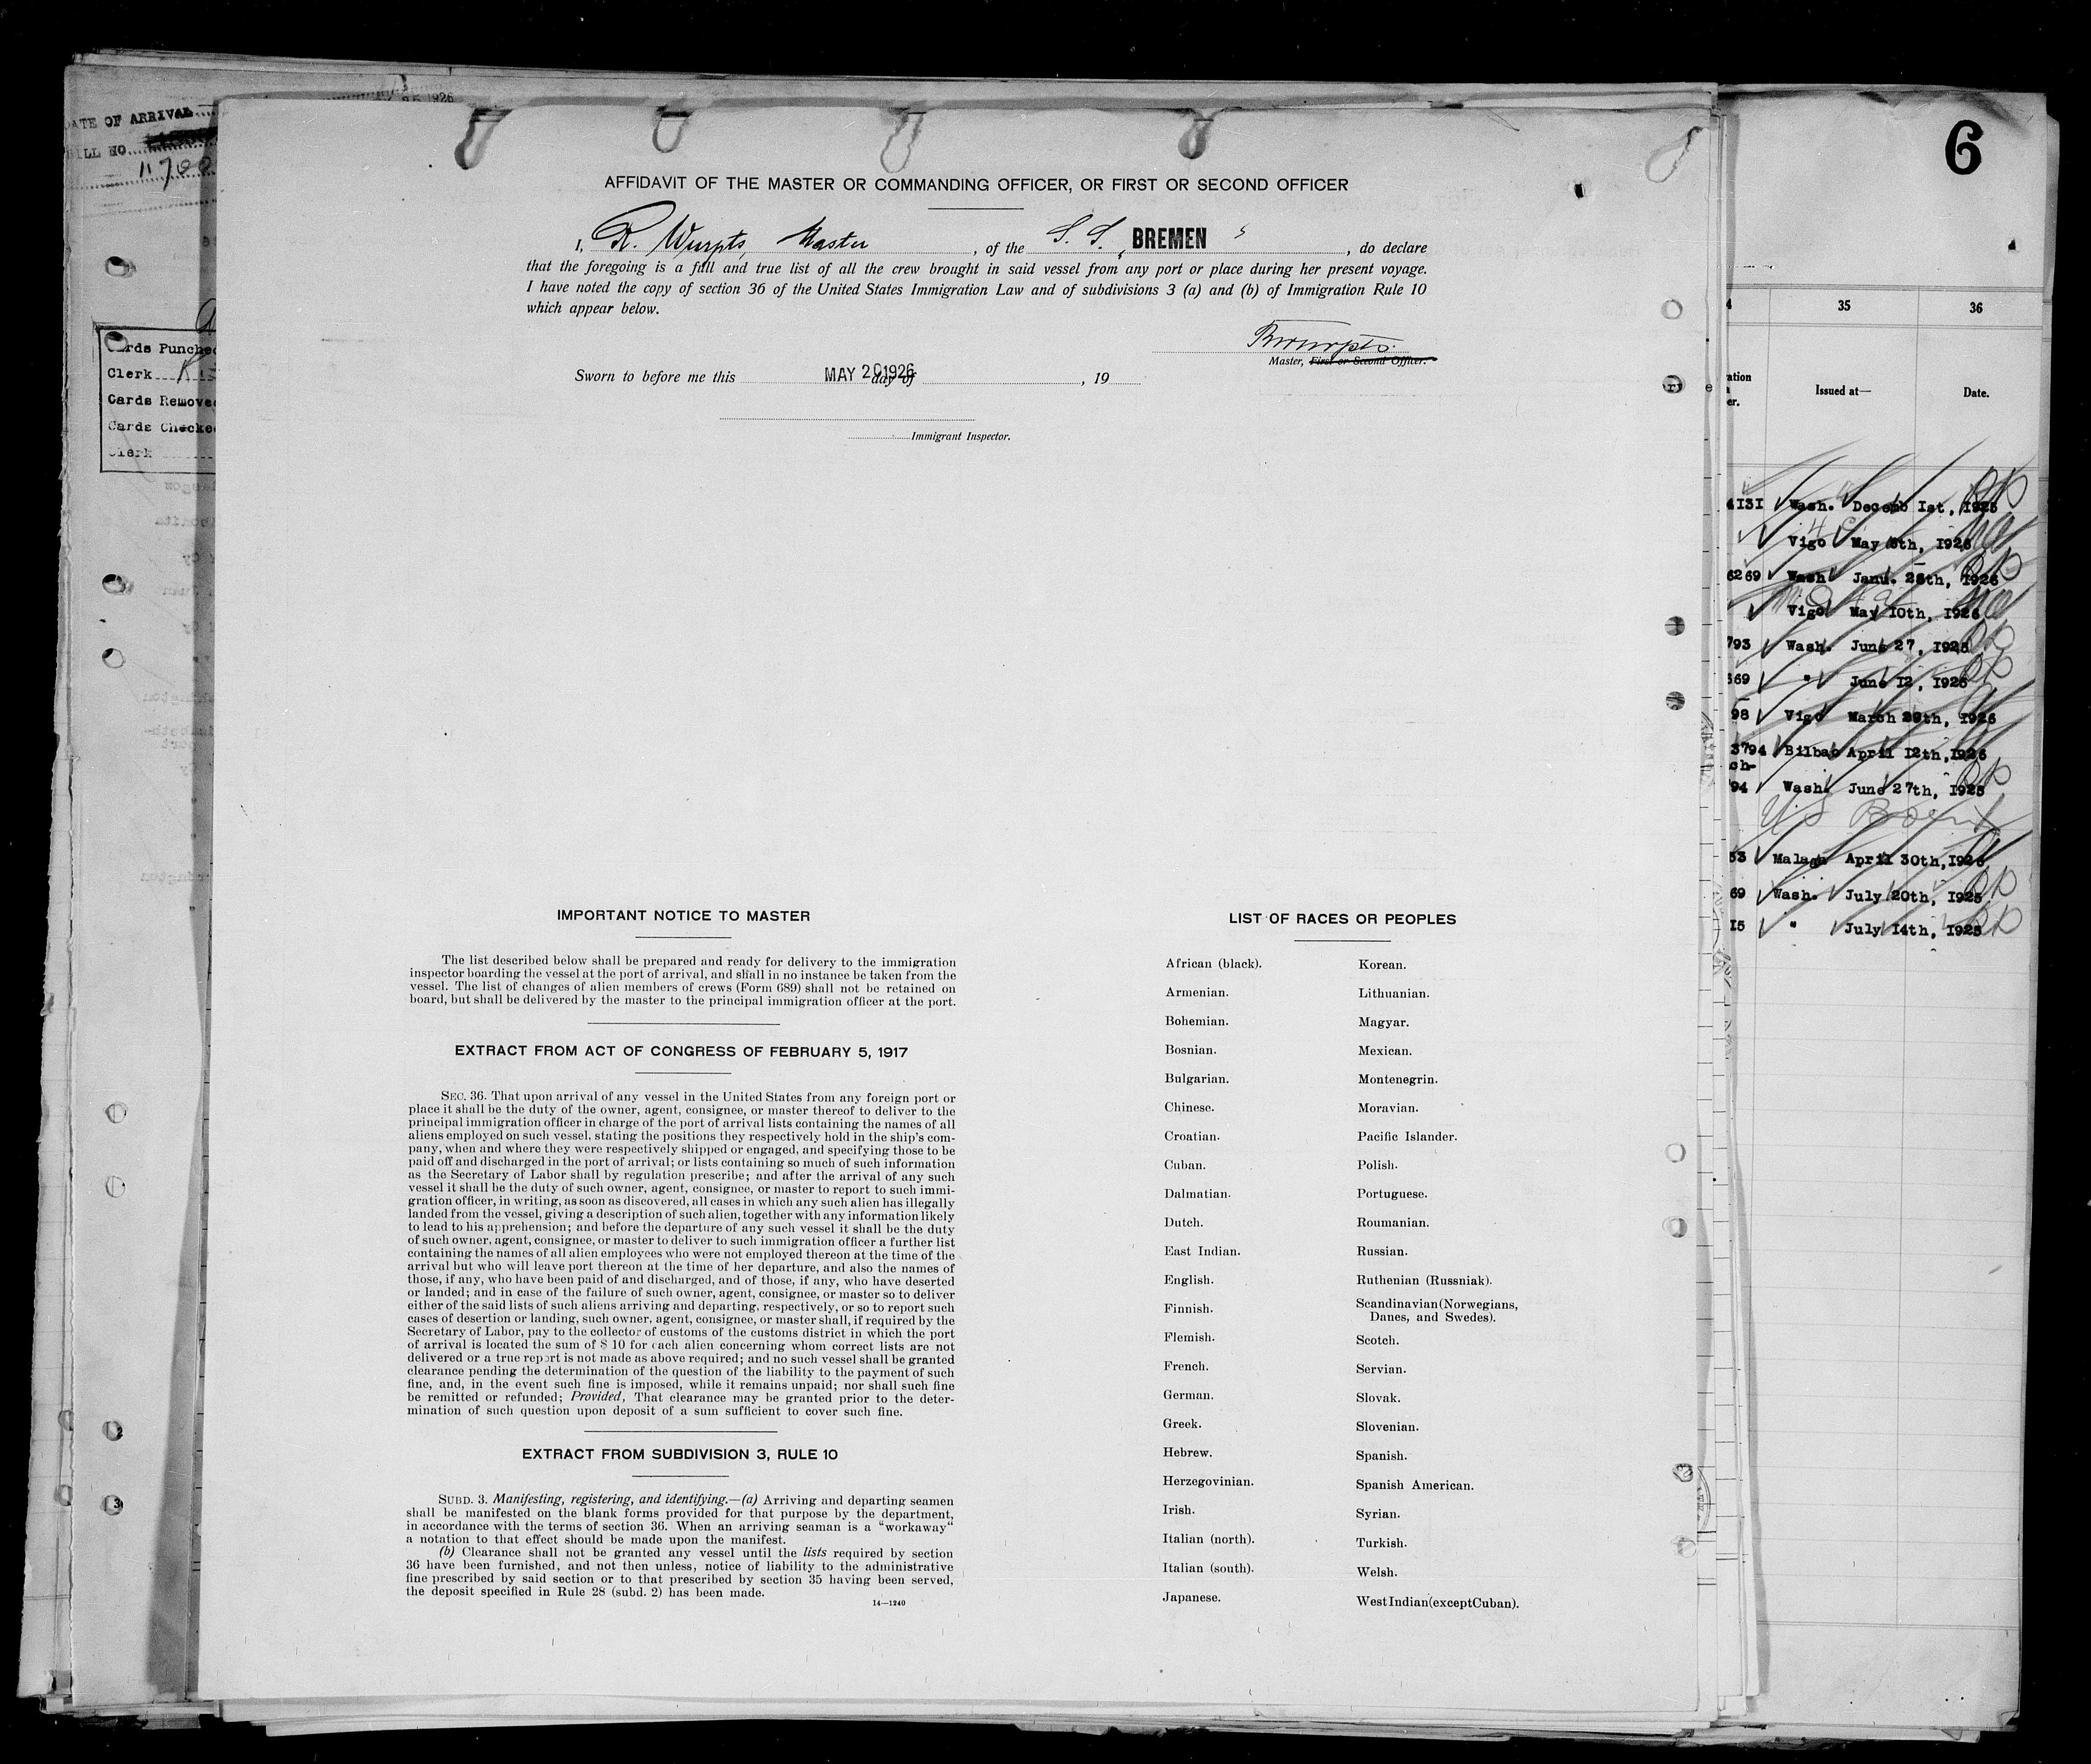 DATE OF ARRIVAL
BILL NO.
11700
Clerk
Cards Checked
Clerk
6
AFFIDAVIT OF THE MASTER OR COMMANDING OFFICER, OR FIRST OR SECOND OFFICER
I, R. Wurpts, Master, of the S. S. BREMEN, do declare
that the foregoing is a full and true list of all the crew brought in said vessel from any port or place during her present voyage.
I have noted the copy of section 36 of the United States Immigration Law and of subdivisions 3 (a) and (b) of Immigration Rule 10
which appear below.
RWurpts.
Master, First or Second Officer.
Sworn to before me this MAY 20 1926 day of , 19
Immigrant Inspector.
IMPORTANT NOTICE TO MASTER
The list described below shall be prepared and ready for delivery to the immigration
inspector boarding the vessel at the port of arrival, and shall in no instance be taken from the
vessel. The list of changes of alien members of crews (Form 689) shall not be retained on
board, but shall be delivered by the master to the principal immigration officer at the port.
EXTRACT FROM ACT OF CONGRESS OF FEBRUARY 5, 1917
SEC. 36. That upon arrival of any vessel in the United States from any foreign port or
place it shall be the duty of the owner, agent, consignee, or master thereof to deliver to the
principal immigration officer in charge of the port of arrival lists containing the names of all
aliens employed on such vessel, stating the positions they respectively hold in the ship's com-
pany, when and where they were respectively shipped or engaged, and specifying those to be
paid off and discharged in the port of arrival; or lists containing so much of such information
as the Secretary of Labor shall by regulation prescribe; and after the arrival of any such
vessel it shall be the duty of such owner, agent, consignee, or master to report to such immi-
gration officer, in writing, as soon as discovered, all cases in which any such alien has illegally
landed from the vessel, giving a description of such alien, together with any information likely
to lead to his apprehension; and before the departure of any such vessel it shall be the duty
of such owner, agent, consignee, or master to deliver to such immigration officer a further list
containing the names of all alien employees who were not employed thereon at the time of the
arrival but who will leave port thereon at the time of her departure, and also the names of
those, if any, who have been paid of and discharged, and of those, if any, who have deserted
or landed; and in case of the failure of such owner, agent, consignee, or master so to deliver
either of the said lists of such aliens arriving and departing, respectively, or so to report such
cases of desertion or landing, such owner, agent, consignee, or master shall, if required by the
Secretary of Labor, pay to the collector of customs of the customs district in which the port
of arrival is located the sum of $ 10 for each alien concerning whom correct lists are not
delivered or a true report is not made as above required; and no such vessel shall be granted
clearance pending the determination of the question of the liability to the payment of such
fine, and, in the event such fine is imposed, while it remains unpaid; nor shall such fine
be remitted or refunded; Provided, That clearance may be granted prior to the deter-
mination of such question upon deposit of a sum sufficient to cover such fine.
EXTRACT FROM SUBDIVISION 3, RULE 10
SUBD. 3. Manifesting, registering, and identifying.—(a) Arriving and departing seamen
shall be manifested on the blank forms provided for that purpose by the department,
in accordance with the terms of section 36. When an arriving seaman is a "workaway"
a notation to that effect should be made upon the manifest.
(b) Clearance shall not be granted any vessel until the lists required by section
36 have been furnished, and not then unless, notice of liability to the administrative
fine prescribed by said section or to that prescribed by section 35 having been served,
the deposit specified in Rule 28 (subd. 2) has been made.
14—1240
LIST OF RACES OR PEOPLES
African (black).
Armenian.
Bohemian.
Bosnian.
Bulgarian.
Chinese.
Croatian.
Cuban.
Dalmatian.
Dutch.
East Indian.
English.
Finnish.
Flemish.
French.
German.
Greek.
Hebrew.
Herzegovinian.
Irish.
Italian (north).
Italian (south).
Japanese.
Korean.
Lithuanian.
Magyar.
Mexican.
Montenegrin.
Moravian.
Pacific Islander.
Polish.
Portuguese.
Roumanian.
Russian.
Ruthenian (Russniak).
Scandinavian (Norwegians,
Danes, and Swedes).
Scotch.
Servian.
Slovak.
Slovenian.
Spanish.
Spanish American.
Syrian.
Turkish.
Welsh.
West Indian (except Cuban).
35 36
Issued at— Date.
4131 Wash. Decemb 1st, 1925
Vigo May 8th, 1926
6269 Wash Janu. 28th, 1926
Vigo May 10th, 1926
793 Wash. June 27, 1925
669 " June 12, 1925
98 Vigo March 29th, 1926
3794 Bilbao April 12th, 1926
94 Wash. June 27th, 1925
US Born
53 Malaga April 30th, 1926
69 Wash. July 20th, 1925
15 " July 14th, 1925